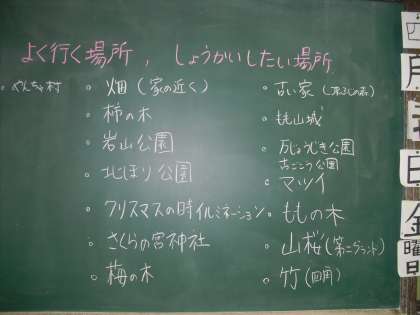 よく行く場所，しょうかいしたい場所
。やんちゃ村
。畑（家の近く）
。柿の木
。岩山公園
。北ほり公園
。クリスマスの時イルミネーション
。さくらの宮神社
。梅の木
。古い家
。桃山城
。万じょうじき公園
おごこう公園
。マツイ
。ももの木
。山桜（第二グランド）
。竹（四角）
四
月
日
金
曜
日